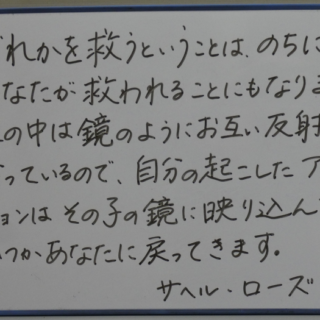 れかを救うということは、のちに
なたが救われることにもなりま
の中は鏡のようにお互い反射
っているので、自分の起こしたア
ョンはその子の鏡に映り込ん
つかあなたに戻ってきます。
サヘル・ローズ